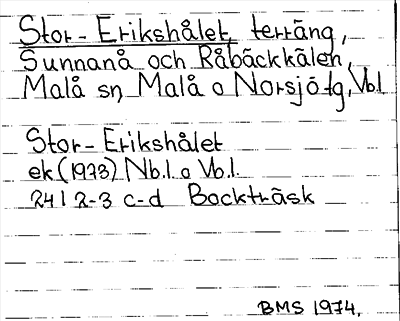 Stor-Erikshålet, terräng,
Sunnanå och Råbäckkälen,
Malå sn, Malå o Norsjö tg, Vbl
Stor-Erikshålet
ek (1973) Nb.l. o Vb.l.
24 I 2-3 c-d Bockträsk
BMS 1974.